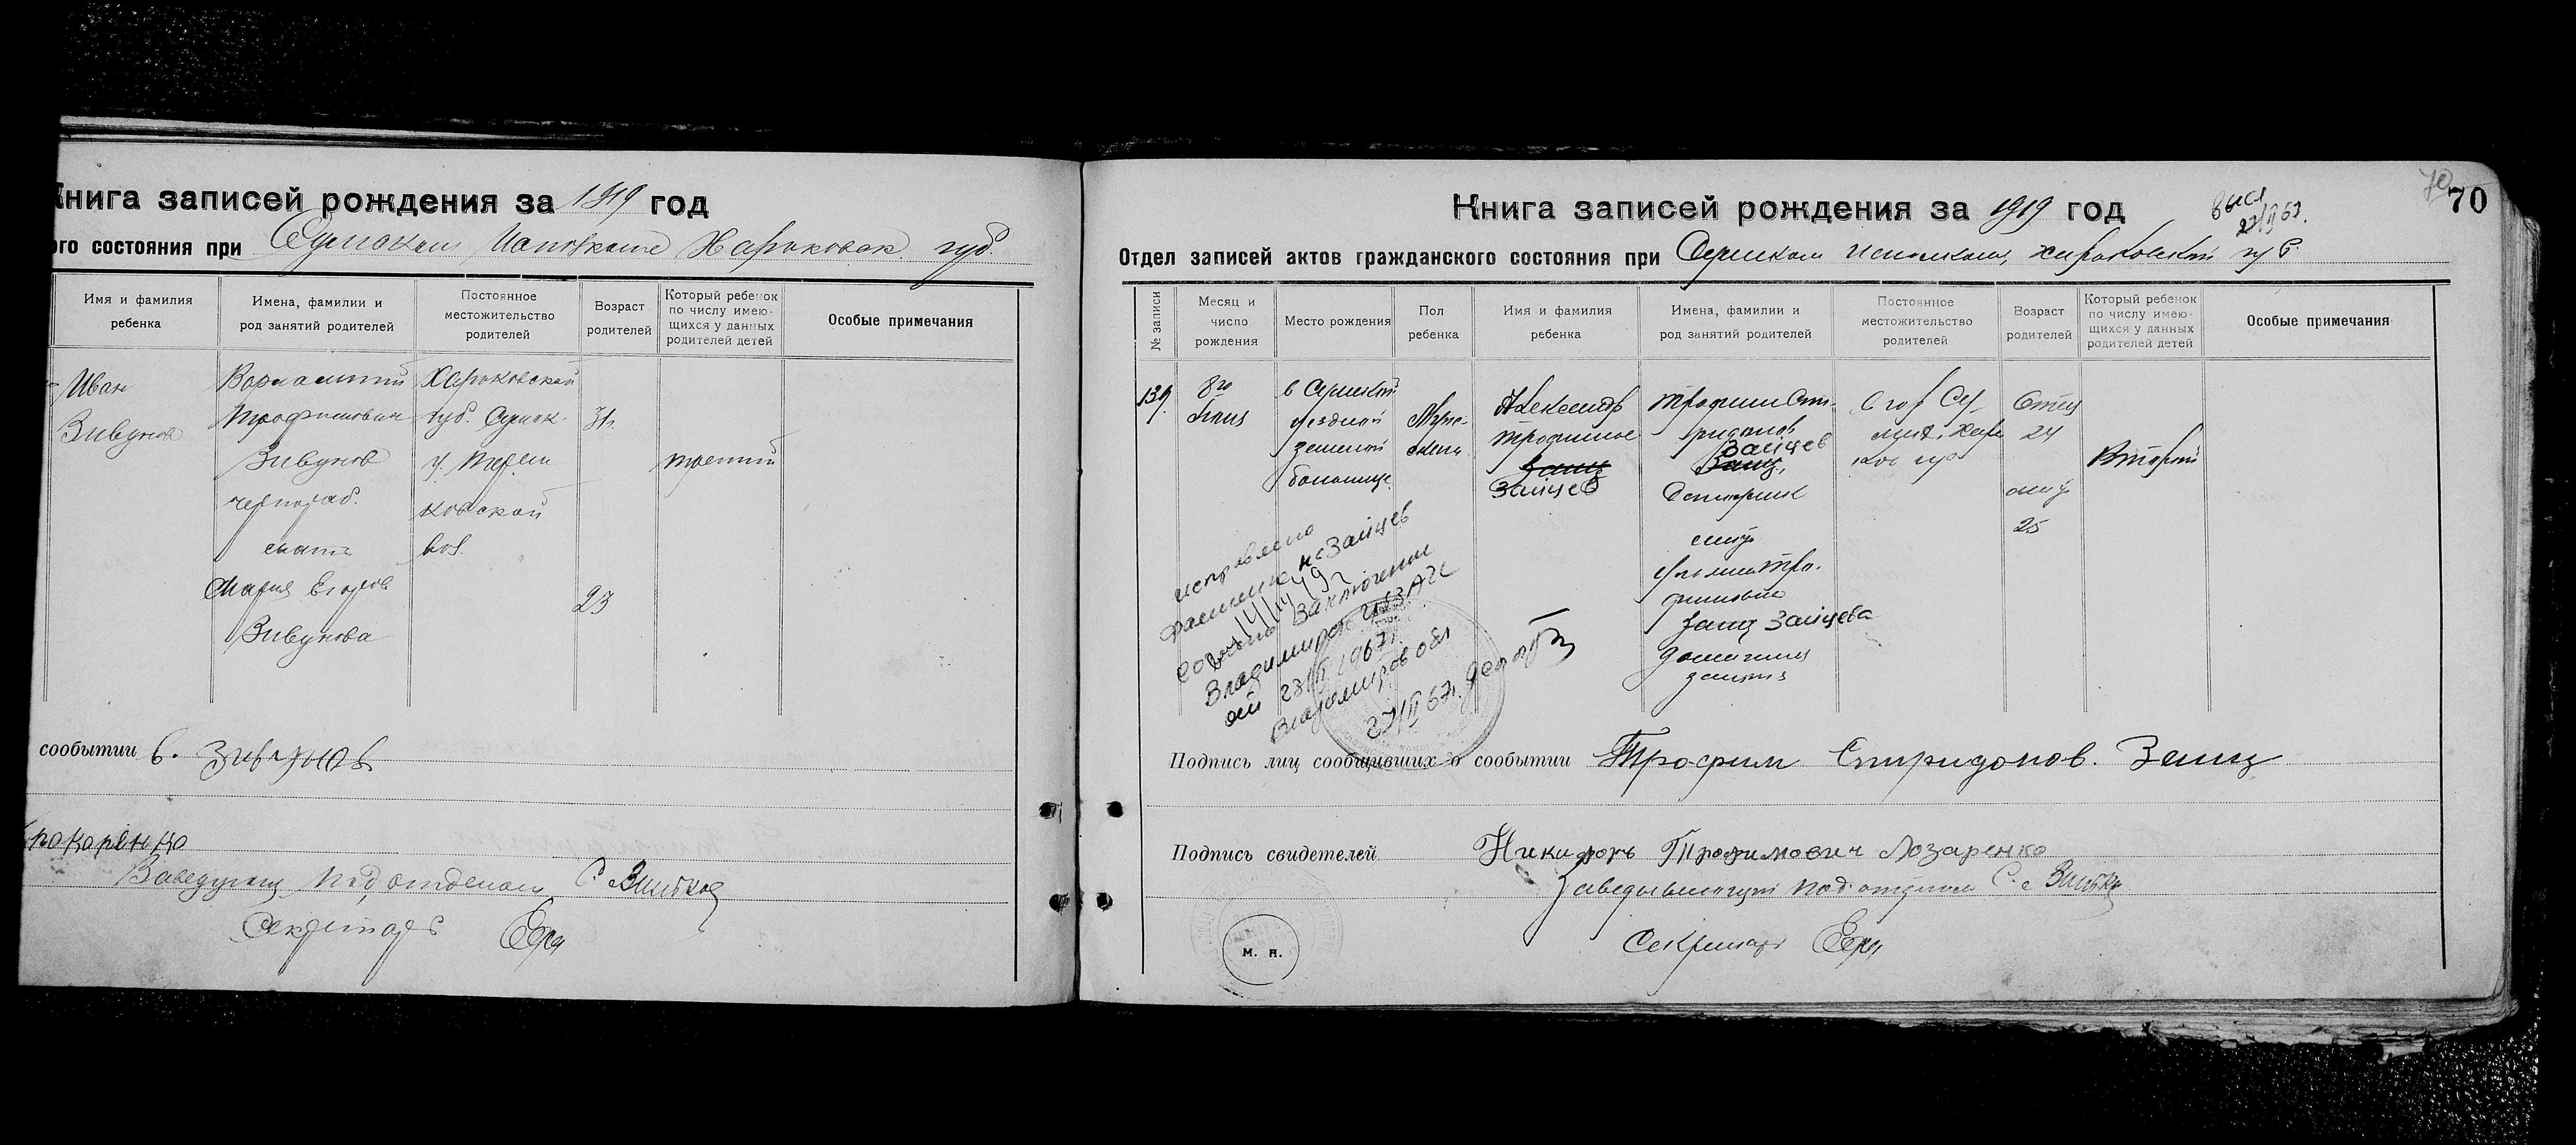 Книга записей рождения за 1919 год
ого состояния при Сумском Исполкоме Харьковск. губ.
Имя и фамилия ребенка
Имена, фамилии и род занятий родителей
Постоянное местожительство родителей
Возраст родителей
Который ребенок по числу имеющихся у данных родителей детей
Особые примечания
Иван
Зивунов
Трофимович
Зивунов
чернораб.
Мария Егоров
Зивунова
Харьковской
губ. Сумск.
у. Терешковской
вол.
31.
23
третий
сообытии В. Зивунов
Заведующ под отделом С.
Секретарь
70
70
Книга записей рождения за 1919 год
27/II 67.
Отдел записей актов гражданского состояния при Сумском исполкоме, харьковской губ.
№ записи
Месяц и число рождения
Место рождения
Пол ребенка
Имя и фамилия ребенка
Имена, фамилии и род занятий родителей
Постоянное местожительство родителей
Возраст родителей
Который ребенок по числу имеющихся у данных родителей детей
Особые примечания
139.
8го
в Сумской
уездной
земской
больнице.
Мужской
Александр
Трофимов
Заяц
Зайцев
Трофим Спиридонов
Зайцев
Заяц,
Трофимовна
Заяц Зайцева
домашния
занятия
Отец
24
25
Второй
исправлено
фамилию на Зайцев
согласно Заключения
Владимирск ЗАГС
23/II 1967г.
Владимиров обл
27/II 67г.
Подпись лиц сообщивших о сообытии Трофим Спиридонов. Заяц
Подпись свидетелей Никифоръ Трофимович Лозаренко
Заведывающий под. отделом С.
Секретарь
М. П.